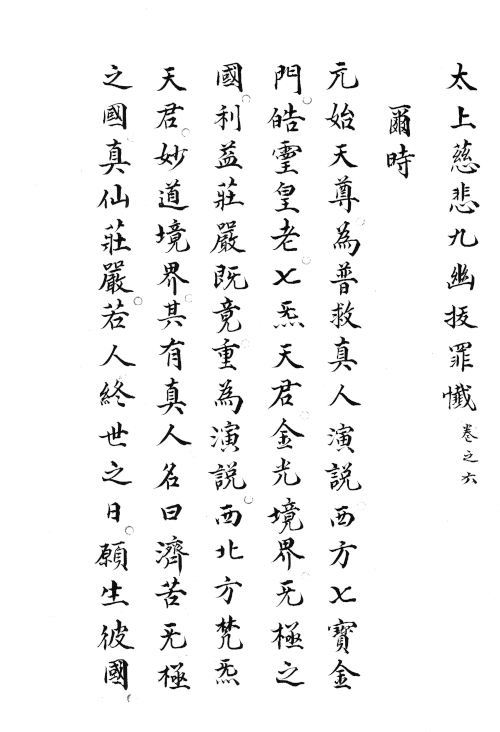 太上慈悲九幽拔罪懺卷之六
爾時
元始天尊為普救真人演説西方七寶金
門。皓靈皇老七炁天君金光境界无極之
國。利益莊嚴既竟。重為演説。西北方梵炁
天君。妙道境界。其有真人名曰濟苦无極
之國真仙莊嚴。若人終世之日。願生彼國。